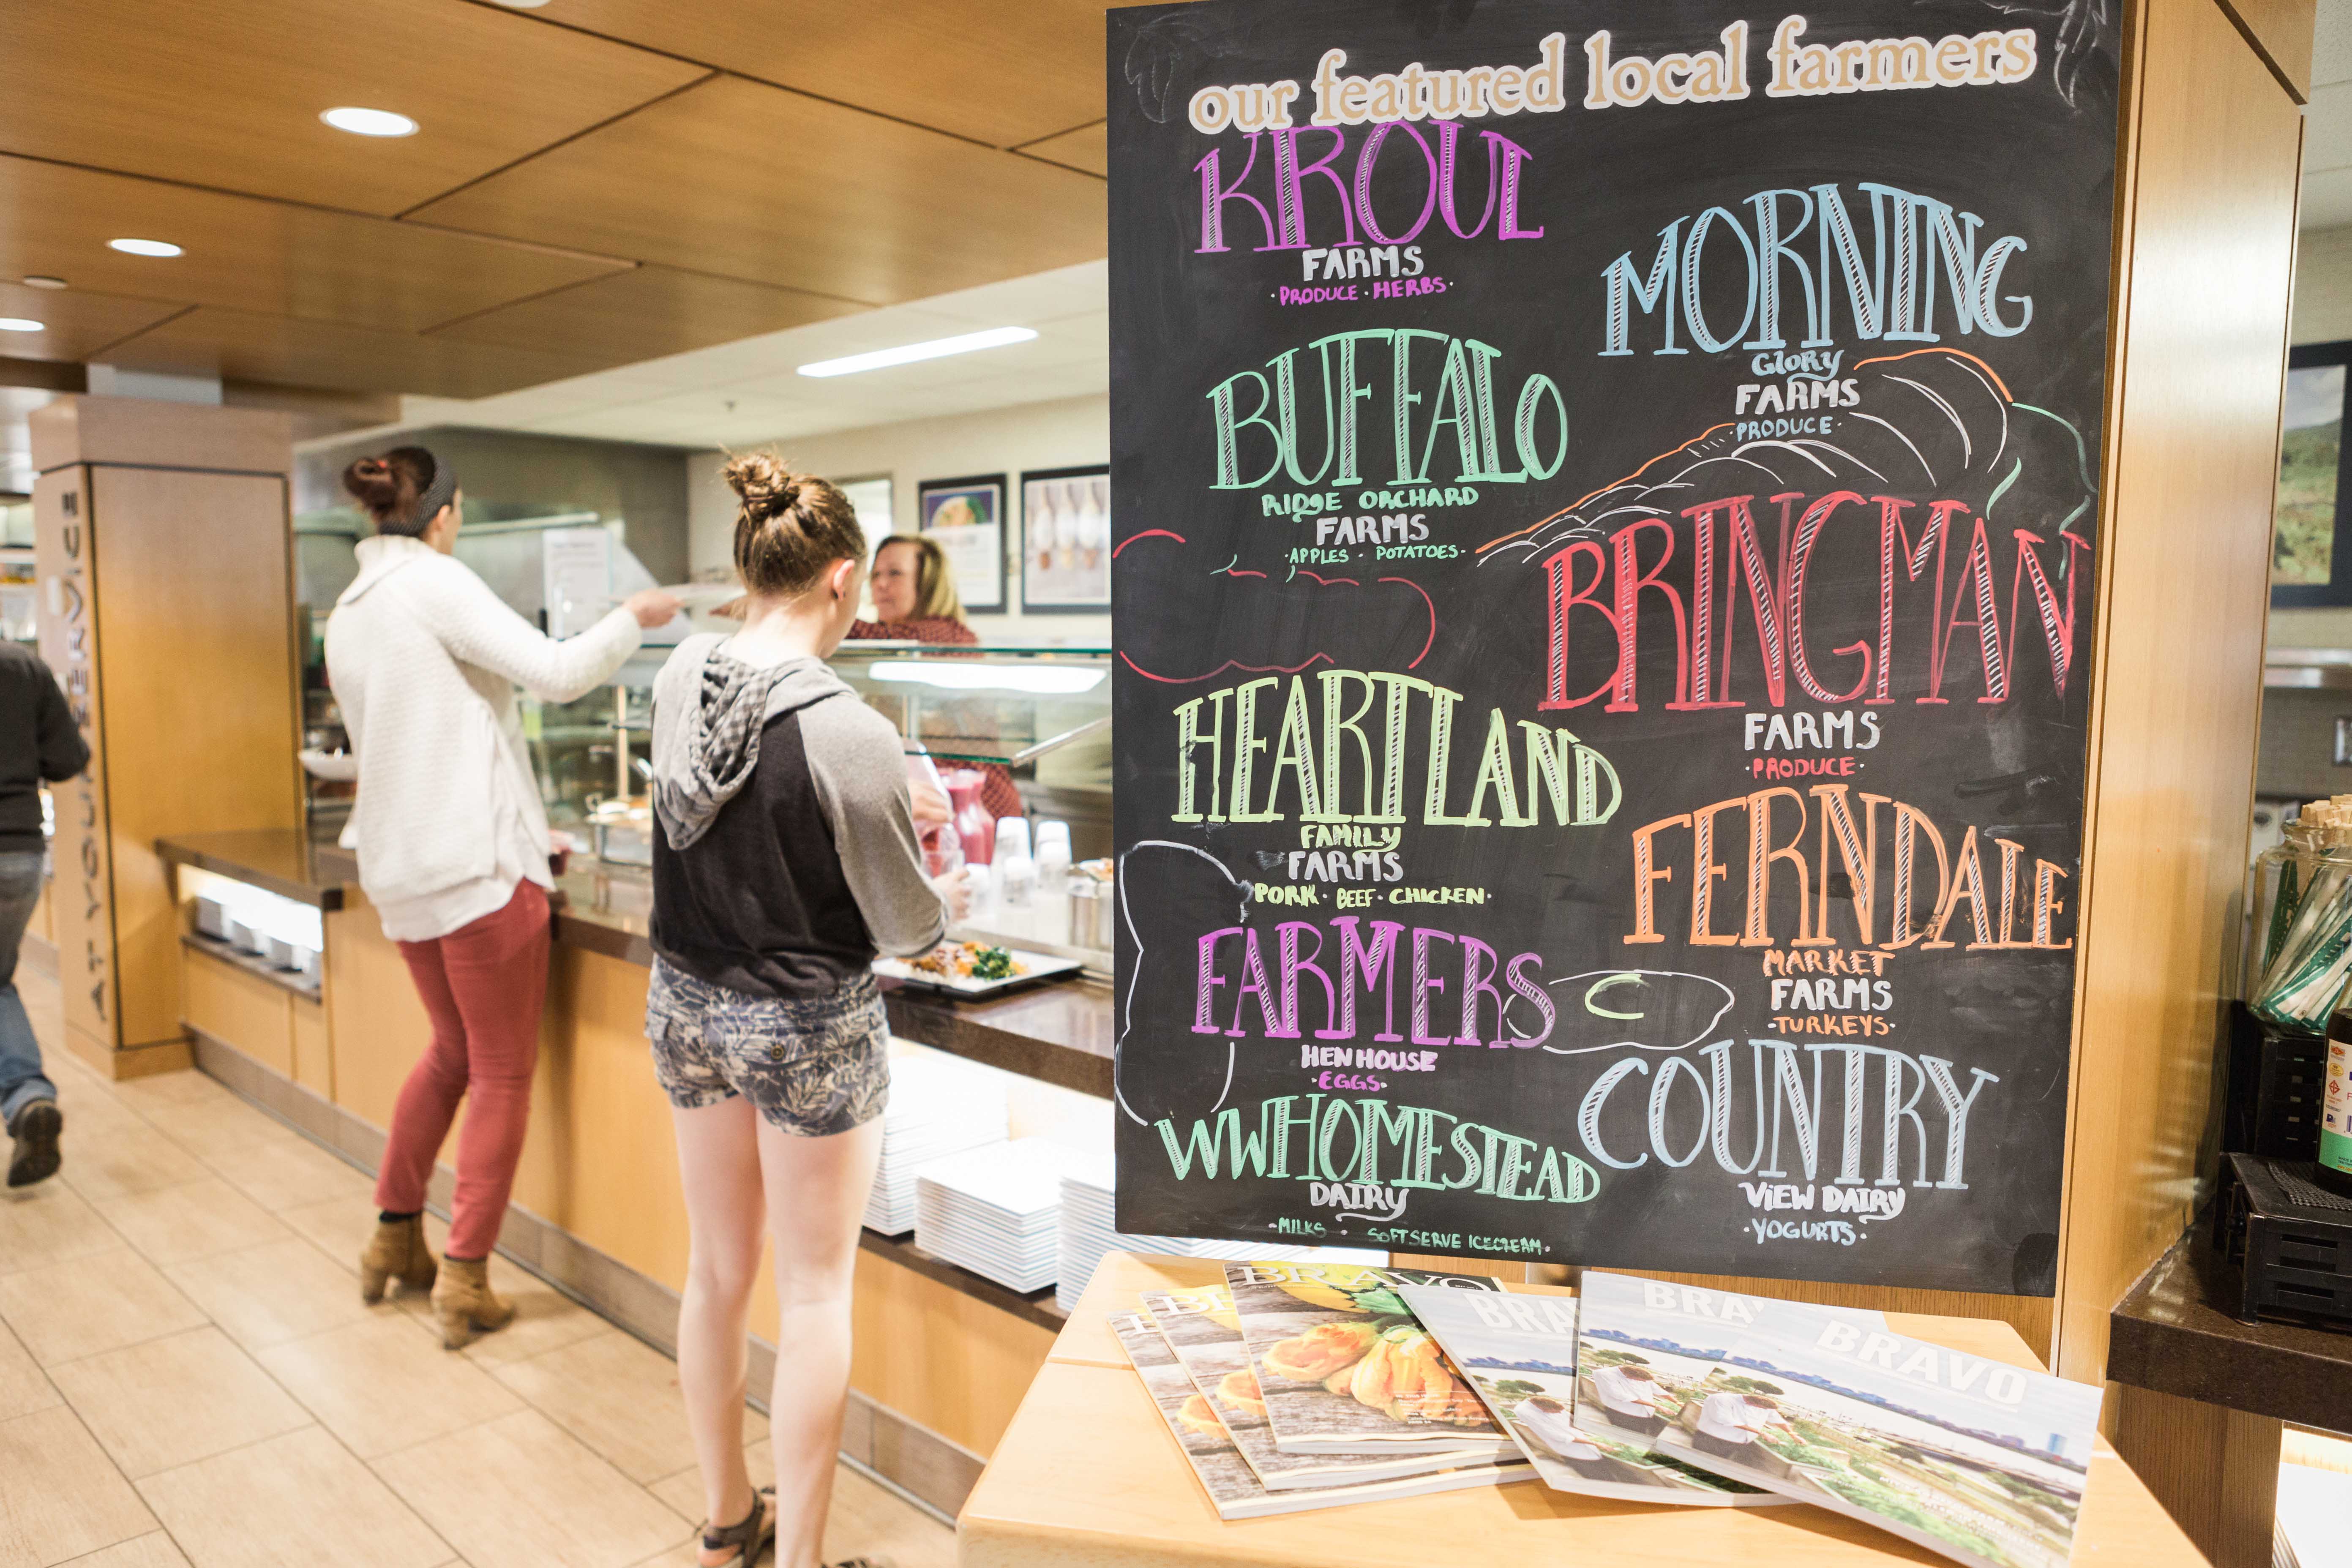 our featured local farmers
KROUL
FARMS
· PRODUCE · HERBS ·
MORNING
GLORY
FARMS
· PRODUCE ·
BUFFALO
RIDGE ORCHARD
FARMS
· APPLES · POTATOES ·
BRINGMAN
FARMS
· PRODUCE ·
HEARTLAND
FAMILY
FARMS
PORK · BEEF · CHICKEN ·
FERNDALE
MARKET
FARMS
· TURKEYS ·
FARMERS
HEN HOUSE
· EGGS ·
COUNTRY
VIEW DAIRY
· YOGURTS ·
WWHOMESTEAD
DAIRY
· MILKS · SOFT SERVE ICECREAM ·
AT YOUR SERVICE
BRAVO
BRA
BRA
BRAVO